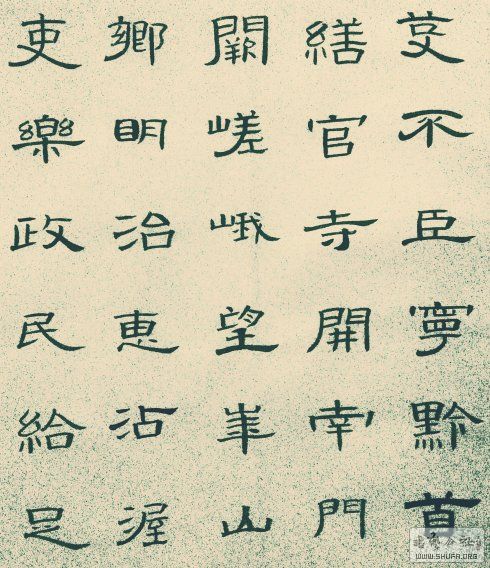 芟不臣寧黔首
繕官寺開南門
闕嵯峨望華山
鄉明治惠沾渥
吏樂政民給足
WWW.SHUFA.ORG